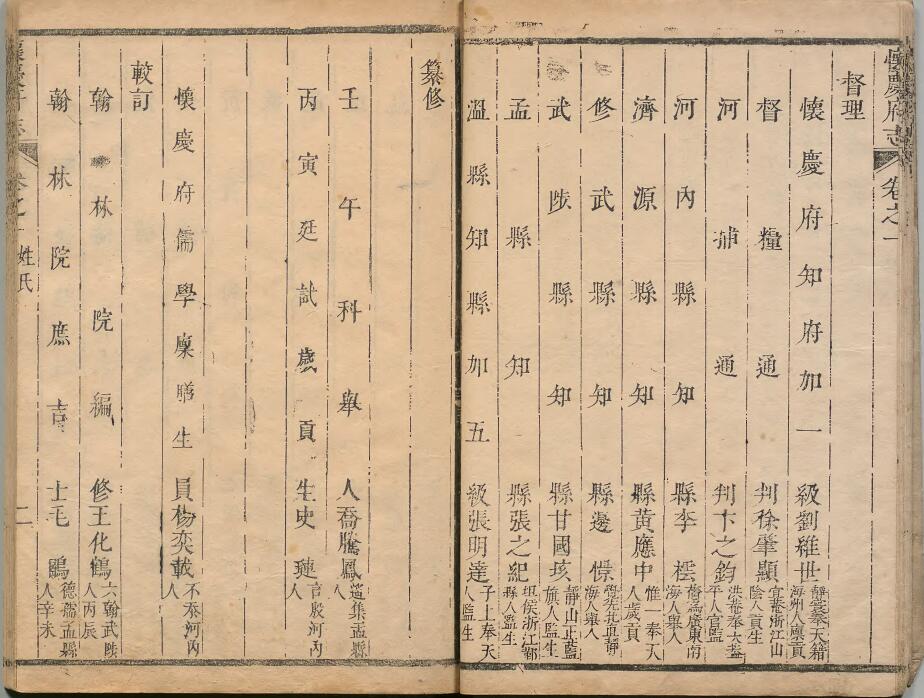 懷慶府志 卷之一
督理
懷慶府知府加一級劉維世
靜菴奉天籍
海州人廩貢
督糧通判徐肇顯
宜菴浙江山
陰人貢生
河捕通判卞之鈞
洪菴奉天蓋
平人官監
河內縣知縣李橒
廣東南
海人舉人
濟源縣知縣黃應中
惟一奉天
人歲貢
修武縣知縣邊憬
直靜
海人舉人
武陟縣知縣甘國垓
靜山正藍
旗人監生
孟縣知縣張之紀
侯浙江鄞
縣人監生
溫縣知縣加五級張明達
子上奉天
人監生
纂修
壬午科舉人喬騰鳳
遥集孟縣
人
丙寅廷試歲貢生史璉
言殷河內
人
懷慶府儒學廩膳生員楊奕載
不泰河內
人
較訂
翰林院編修王化鶴
六翰武陟
人丙辰
翰林院庶吉士毛鵾
德孺孟縣
人辛未
懷慶府志 卷之一 姓氏 二